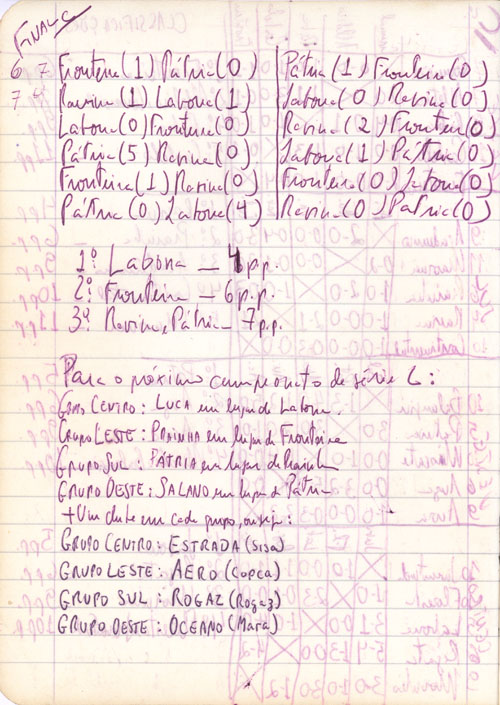 FINAL C
6 7 Fronteira (1) Pátria (0) | Pátria (1) Fronteira (0)
7 4 Ravina (1) Laboua (1) | Laboua (0) Ravina (0)
Laboua (0) Fronteira (0) | Ravina (2) Fronteira (0)
Pátria (5) Ravina (0) | Laboua (1) Pátria (0)
Fronteira (1) Ravina (0) | Fronteira (0) Laboua (0)
Pátria (0) Laboua (4) | Ravina (0) Pátria (0)
1º. Laboua — 4 p.p.
2º. Fronteira — 6 p.p.
3º Ravina, Pátria — 7 p.p.
Para o próximo campeonato de série C:
GRUPO CENTRO: LUCA em lugar de Laboua.
GRUPO LESTE: PRAINHA em lugar de Fronteira
GRUPO SUL: PÁTRIA em lugar de Prainha
GRUPO OESTE: SALANO em lugar de Pátria
+ Um clube em cada grupo, ou seja:
GRUPO CENTRO: ESTRADA (Sisa)
GRUPO LESTE: AERO (Copca)
GRUPO SUL: ROGAZ (Rogaz)
GRUPO OESTE: OCEANO (Mara)